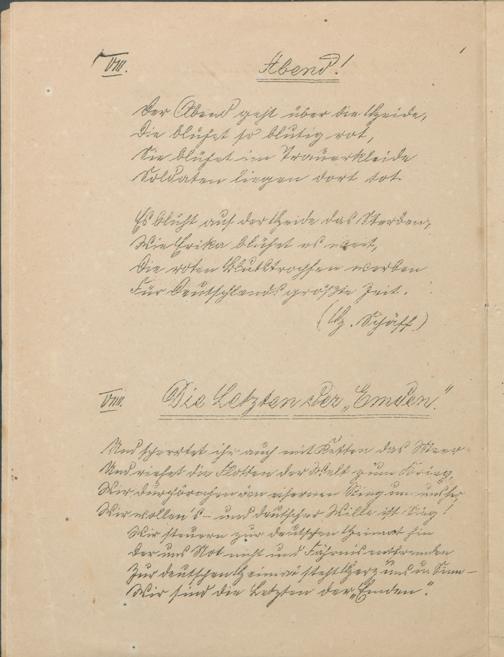 VII.
Abend!
Der Abend geht über die Heide,
Die blühet so blutig rot,
Sie blühet im Trauerkleide
Soldaten liegen dort tot.
Es blüht auf der Heide das Sterben,
Wie Erika blühet es weit,
Die roten Blutstropfen werben
Für Deutschlands größte Zeit.
(G. Schäff)
VIII.
Die Letzten der „Emden".
Und sperrtet ihr auch mit Ketten das Meer
Und riefet die Flotten der Welt zum Krieg,
Wir durchbrechen den eisernen Ring um uns her
Wir wollen's – und deutscher Wille ist Sieg!
Wir steuern zur deutschen Heimat hin
Der uns Not nicht und
Zur deutschen Heimat steht Herz uns u. Sinn –
Wir sind die Letzten der „Emden".